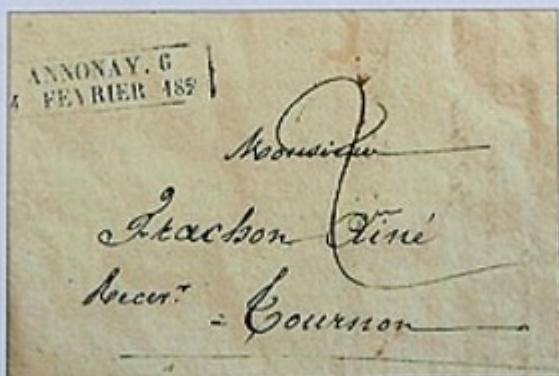 ANNONAY. 6
FEVRIER 18
Monsieur
Frachon Ainé
Recev.r
= Tournon
2